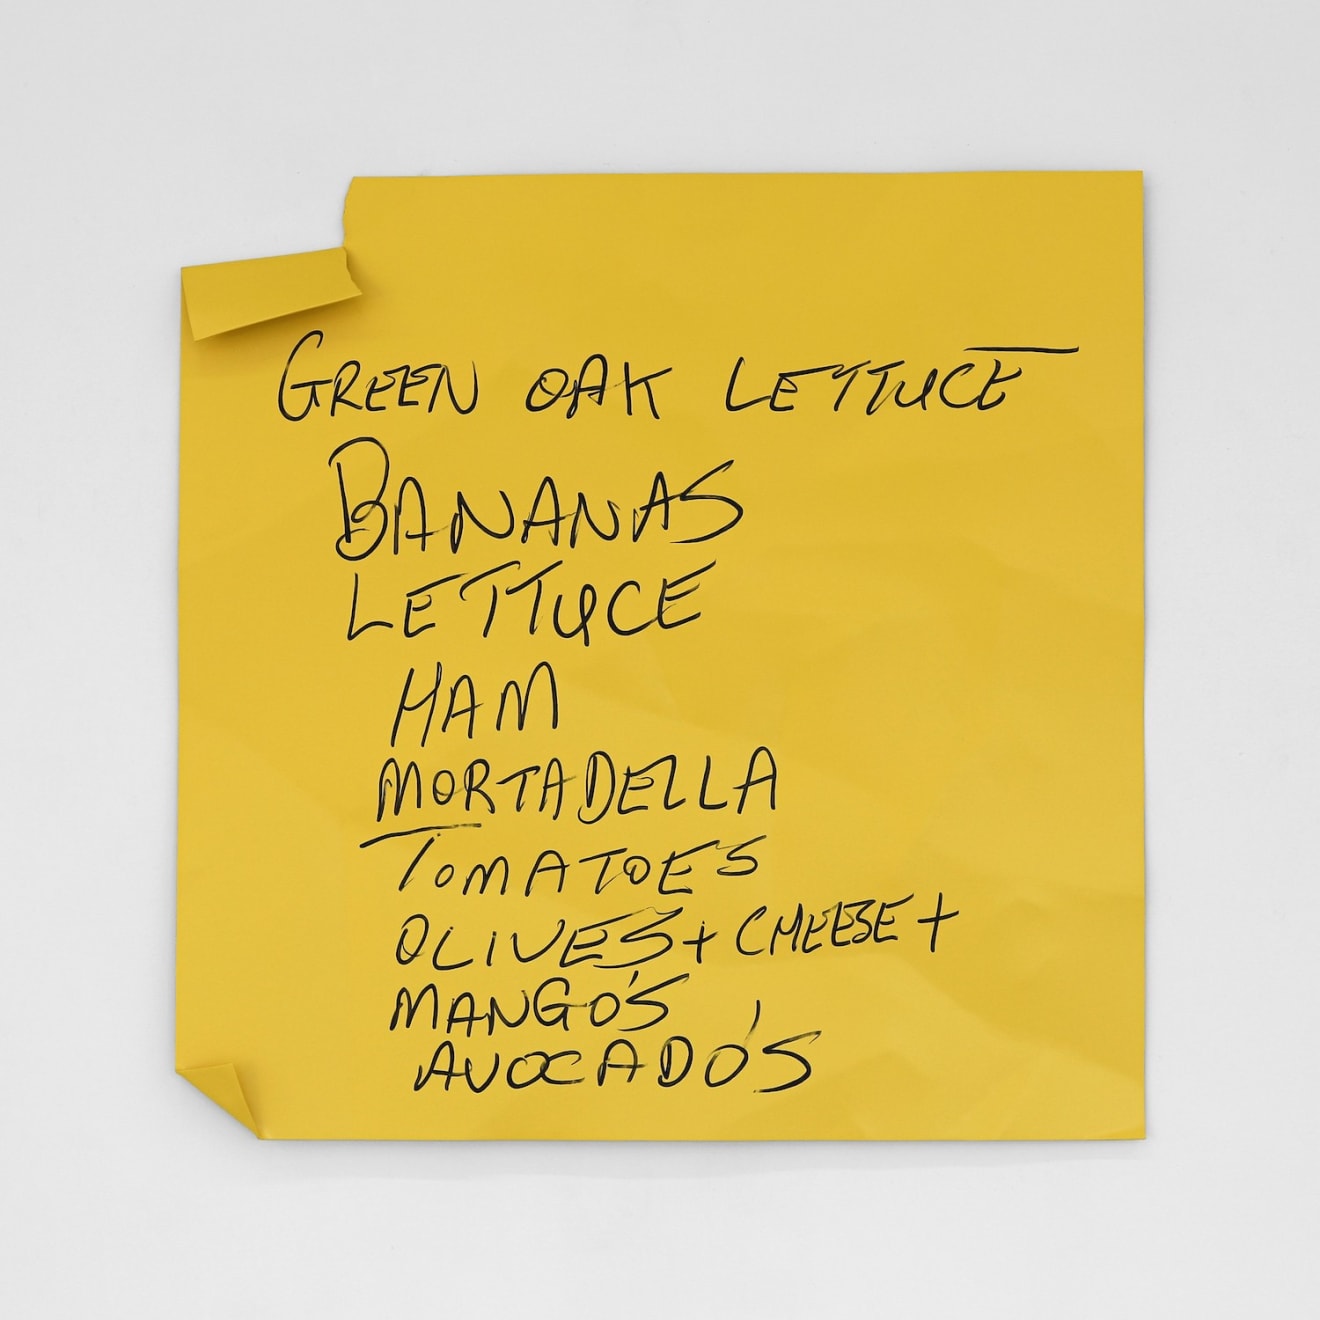 GREEN OAK LETTUCE
BANANAS
LETTUCE
HAM
MORTADELLA
TOMATOES
OLIVES + CHEESE +
MANGO'S
AVOCADO'S